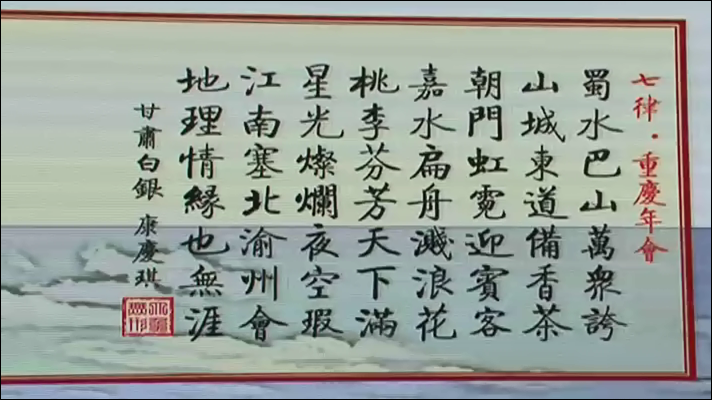 七律·重慶年會
蜀水巴山萬衆誇
山城東道備香茶
朝門虹霓迎賓客
嘉水扁舟濺浪花
桃李芬芳天下滿
星光燦爛夜空瑕
江南塞北渝州會
地理情緣也無涯
甘肅白銀 康慶琪